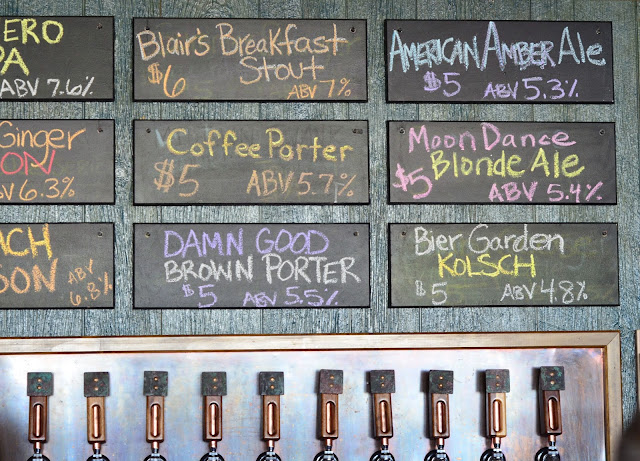 ERO
PA
ABV 7.6%
Blair's Breakfast
Stout
$6 ABV 7%
American Amber Ale
$5 ABV 5.3%
Ginger
ON
ABV 6.3%
Coffee Porter
$5 ABV 5.7%
Moon Dance
Blonde Ale
$5 ABV 5.4%
ACH
SON
ABV
6.8%
DAMN GOOD
BROWN PORTER
$5 ABV 5.5%
Bier Garden
KOLSCH
$5 ABV 4.8%